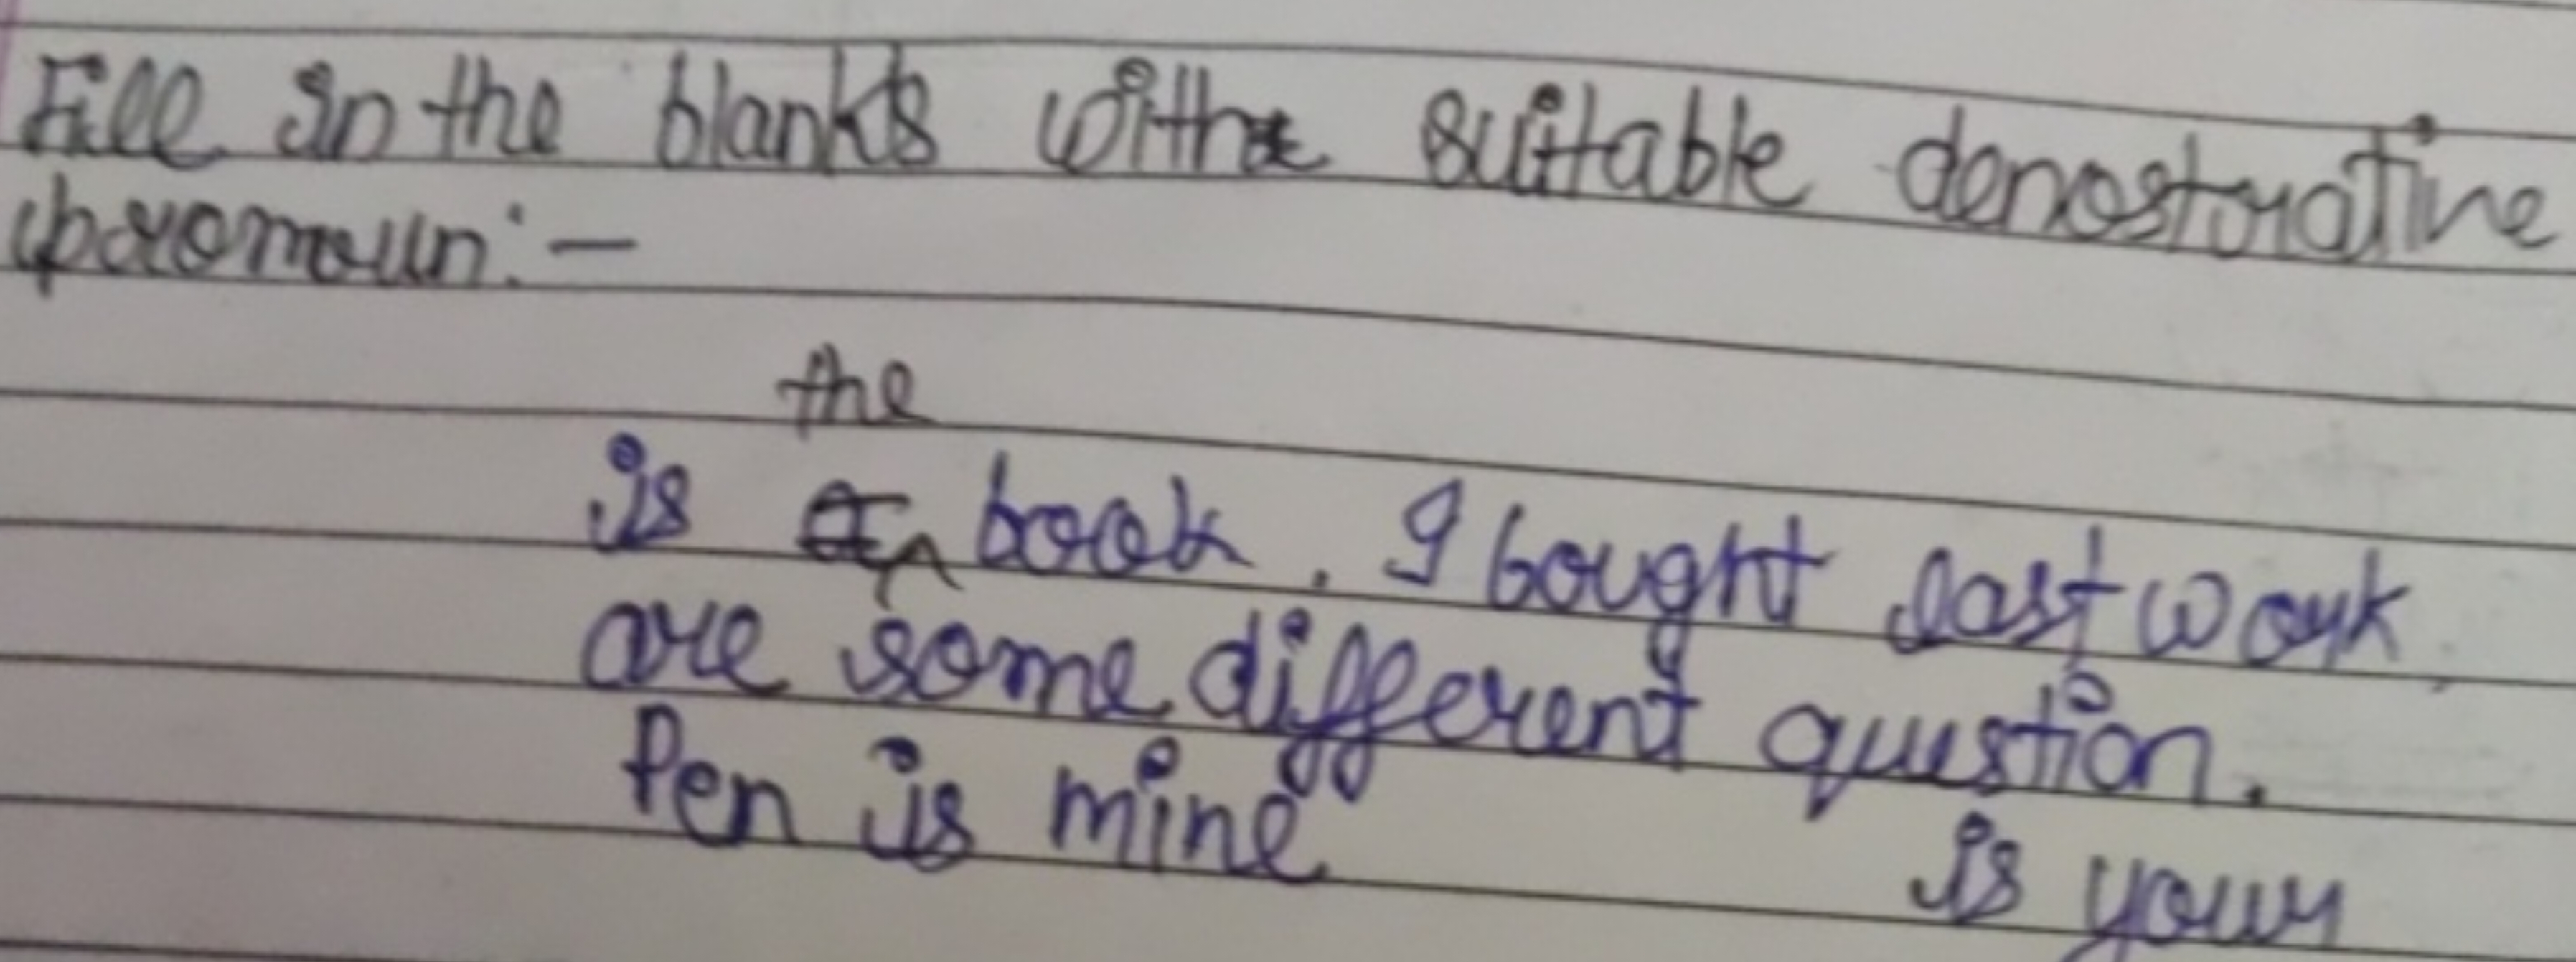 Fill in the blanks with suitable denostrative
pronoun:-
the
is book. I bought last work
are some different question.
Pen is mine is your